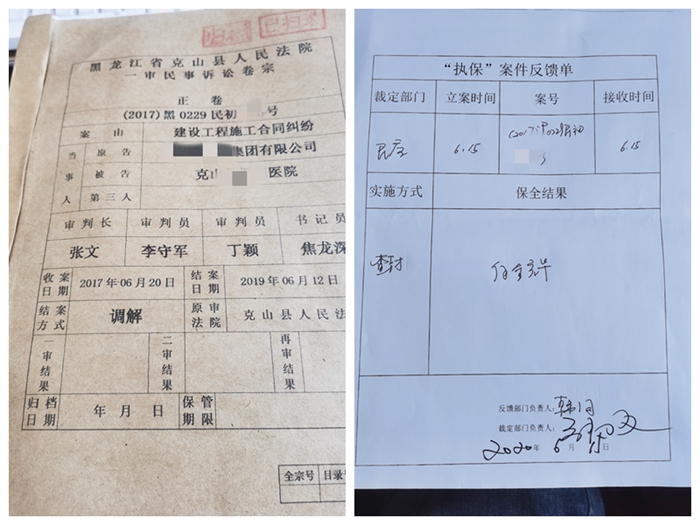 归档
已扫描
黑龙江省克山县人民法院
一审民事诉讼卷宗
正卷
(2017)黑0229民初 号
案由 建设工程施工合同纠纷
当事人 原告 集团有限公司
被告 克山 医院
第三人
审判长 审判员 审判员 书记员
张文 李守军 丁颖 焦龙深
收案日期 2017年06月20日 结案日期 2019年06月12日
结案方式 调解 原审法院 克山县人民法
一审结果 二审结果 再审结果
归档日期 年月日 保管期限
全宗号 目录号
“执保”案件反馈单
裁定部门 立案时间 案号 接收时间
民庭 6.15 6.15
实施方式 保全结果
查封 保全完毕
反馈部门负责人:
裁定部门负责人:
2020年6月 日